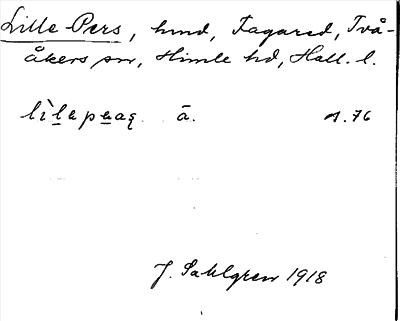 Lille-Pers, hmd, Fagared, Två-
åkers sn, Himle hd, Hall. l.
ā. s. 76
J. Sahlgren 1918